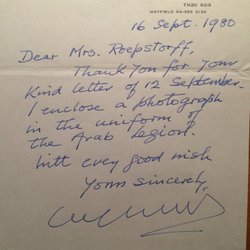 TN20 6DS
MAYFIELD 04-355 3136
16 Sept. 1980
Dear Mrs. Roepstorff,
Thank you for your
Kind letter of 12 September.
I enclose a photograph
in the uniform of
the Arab Legion.
With every good wish
Yours sincerely,